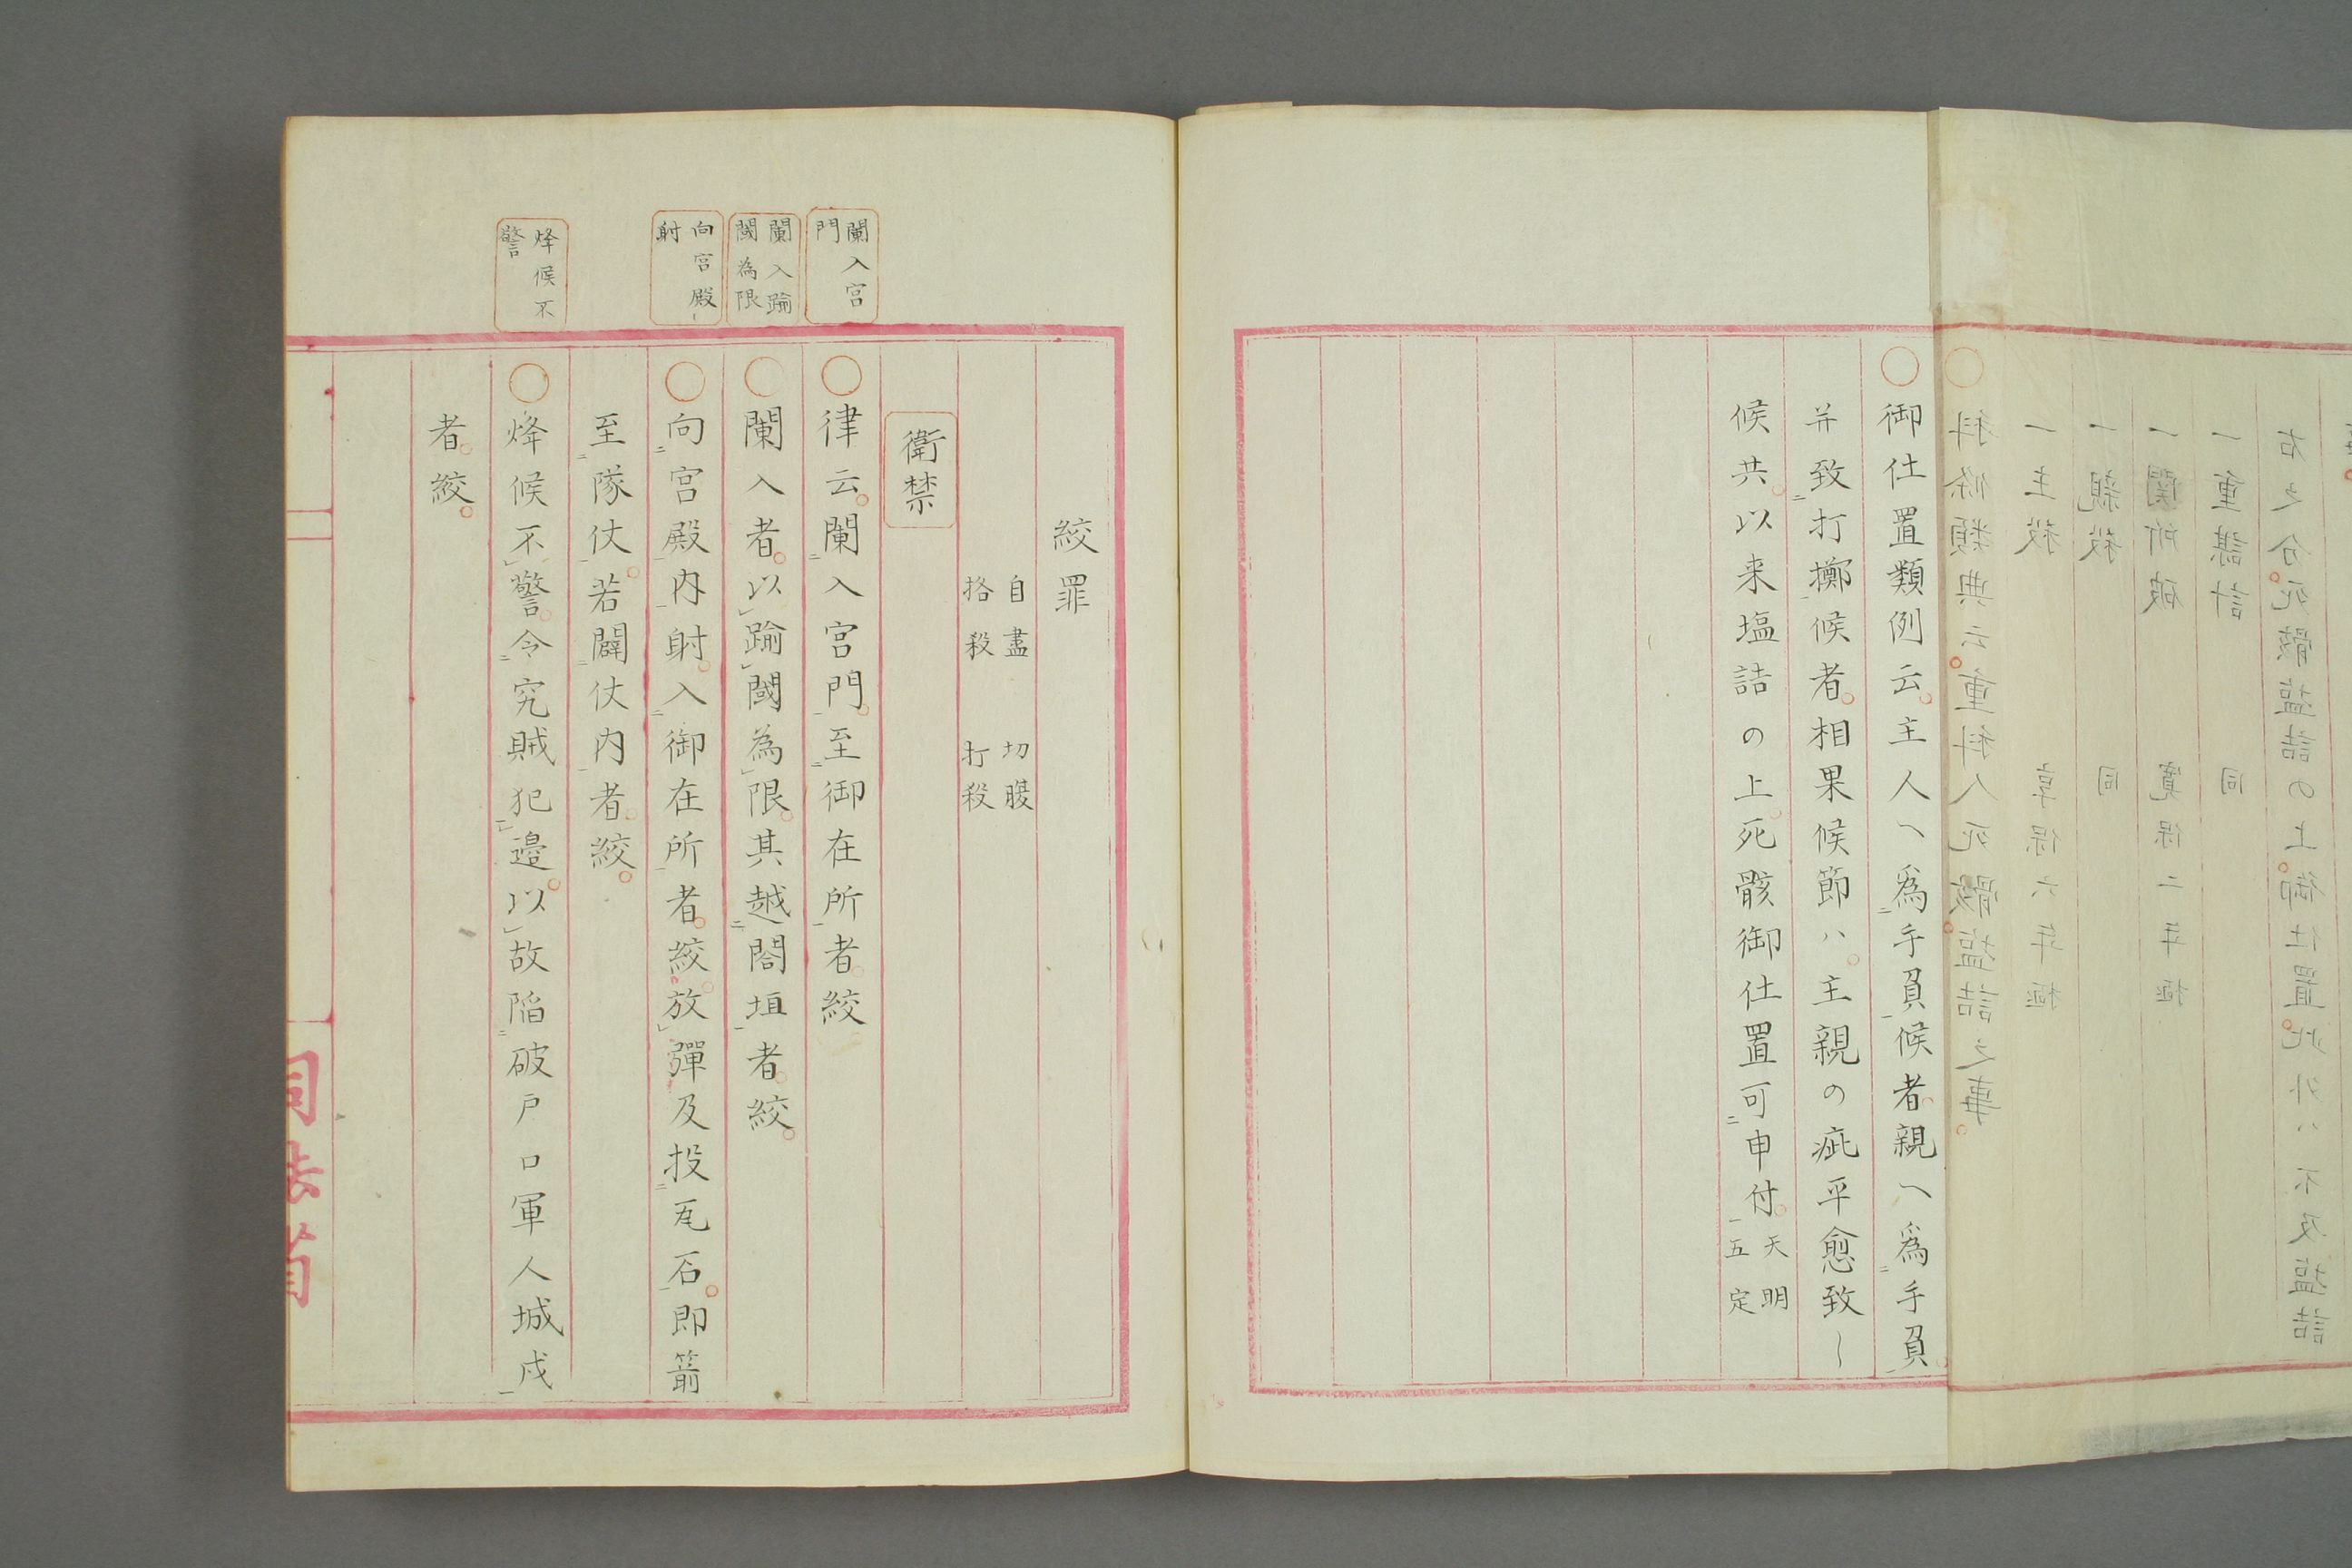 ○科條類典云。重科人死骸。塩詰之事。
一主殺 享保六年極
一親殺 同
一関所破 寛保二年極
一重謀計 同
右之分。死骸塩詰の上。御仕置。此外ハ不及塩詰
○御仕置類例云。主人へ為手負候者。親へ為手負。
并致打擲候者。相果候節ハ。主親の疵平愈致し
候共。以来塩詰の上。死骸御仕置可申付。天明五定
絞罪
自盡 切腹
挌殺 打殺
衛禁
闌入宮門
○律云。闌入宮門。至御在所者絞
闌入踰閾為限
○闌入者。以踰閾為限。其越閤垣者。絞。
向宮殿射
○向宮殿内射。入御在所者。絞。放彈及投瓦石。即箭
至隊仗。若闢仗内者。絞。
烽候不警
○烽候不警。令究賊犯邉。以故陷破戸口軍人城戍
者。絞。
司法省